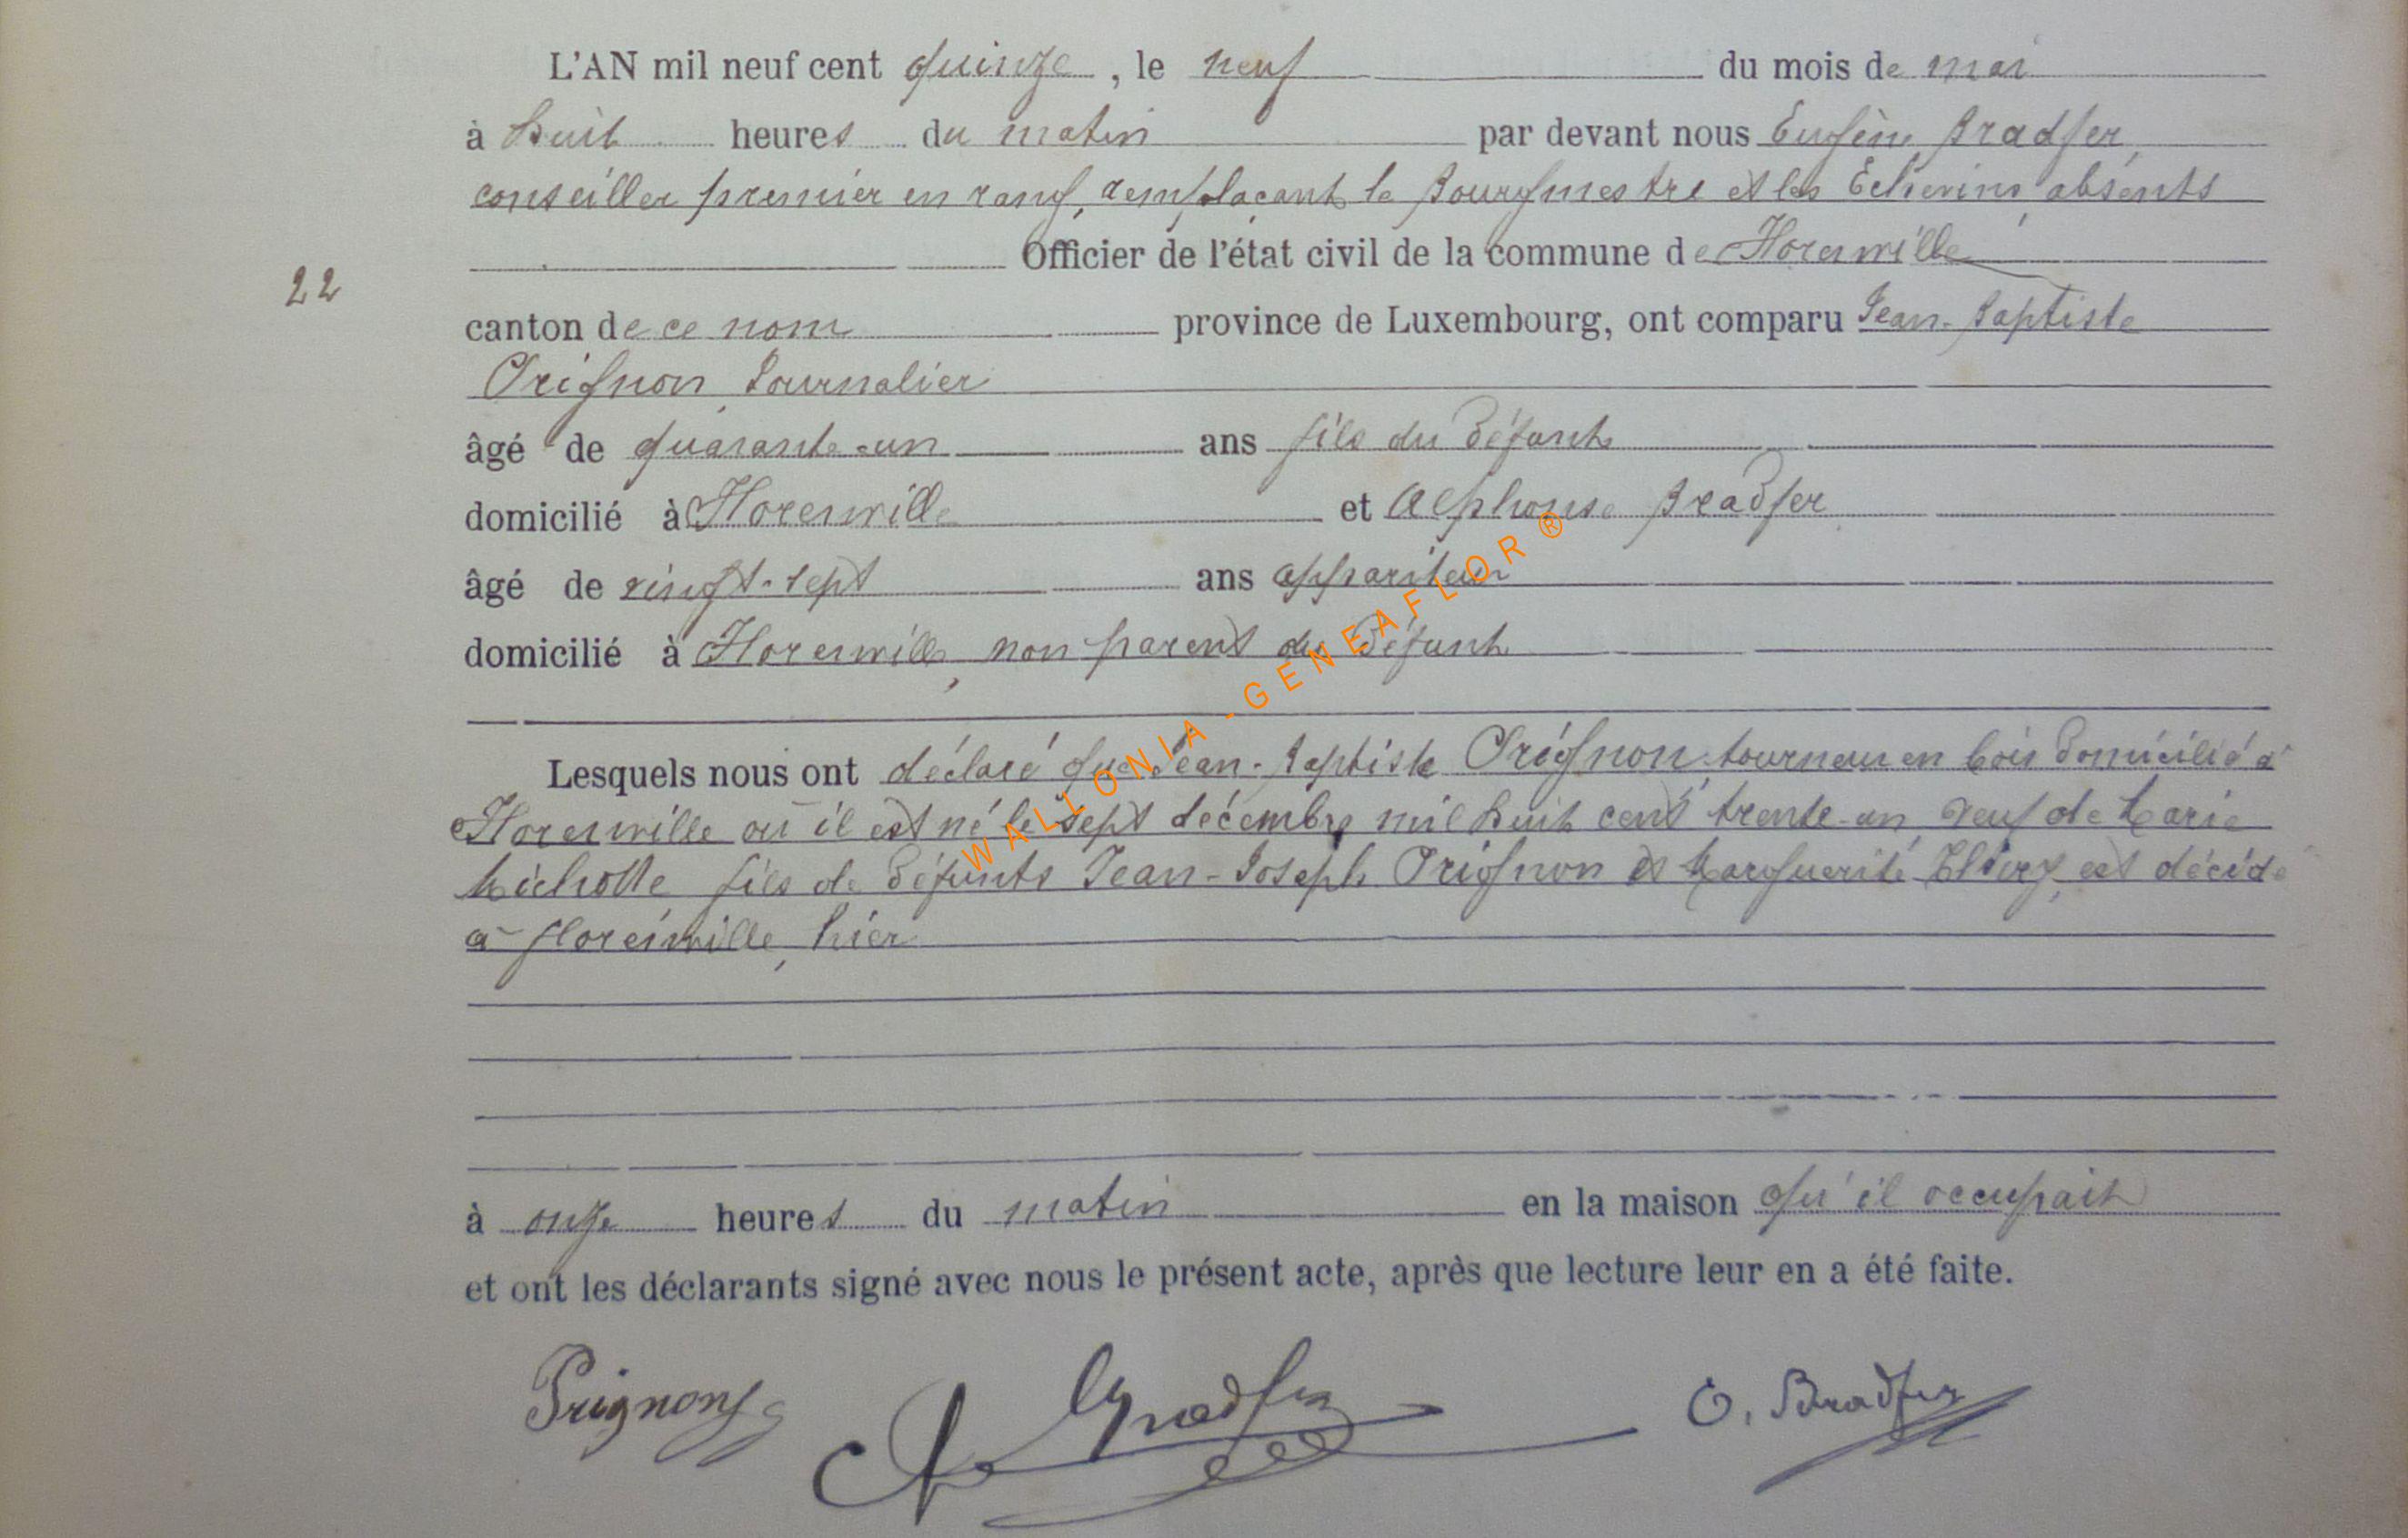 L'AN mil neuf cent quinze, le neuf du mois de mai
à huit heures du matin par devant nous Eugène Bradfer,
conseiller premier en rang, remplaçant le Bourgmestre et les Echevins absents
Officier de l'état civil de la commune de Florenville
22
canton de ce nom province de Luxembourg, ont comparu Jean-Baptiste
Prignon, Journalier
âgé de quarante-un ans fils du défunt
domicilié à Florenville et Alphonse Bradfer
âgé de vingt-sept ans appariteur
domicilié à Florenville, non parent du défunt
Lesquels nous ont déclaré que Jean-Baptiste Prignon tourneur en bois domicilié à
Florenville où il est né le sept décembre mil huit cent trente-un, veuf de Marie
Michotte fils de défunts Jean-Joseph Prignon et Marguerite est décédé
à Florenville, hier
à onze heures du matin en la maison qu'il occupait
et ont les déclarants signé avec nous le présent acte, après que lecture leur en a été faite.
Prignon A Bradfer E. Bradfer
WALLONIA-GENEAFLOR®